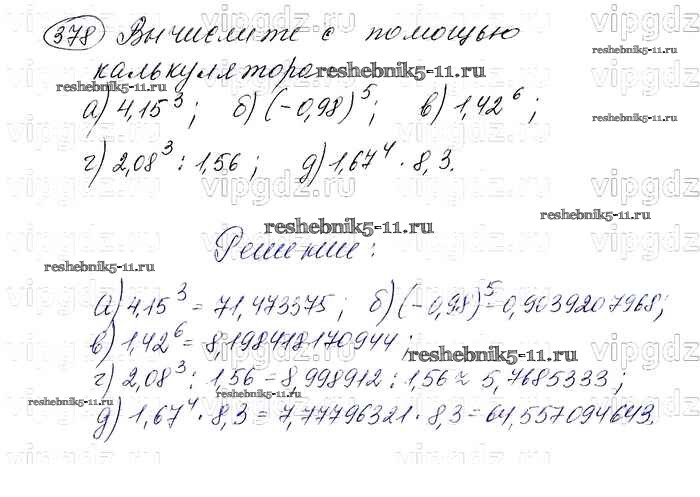 378 Вычислите с помощью
калькулятора
а) 4,15³; б) (-0,98)⁵; в) 1,42⁶;
г) 2,08³ : 1,56; д) 1,67⁴ · 8,3.
Решение:
а) 4,15³ = 71,473375; б) (-0,98)⁵ = -0,9039207968;
в) 1,42⁶ = 8,198418170944;
г) 2,08³ : 1,56 = 8,998912 : 1,56 ≈ 5,7685333;
д) 1,67⁴ · 8,3 = 7,77796321 · 8,3 = 64,557094643.
vipgdz.ru
reshebnik5-11.ru